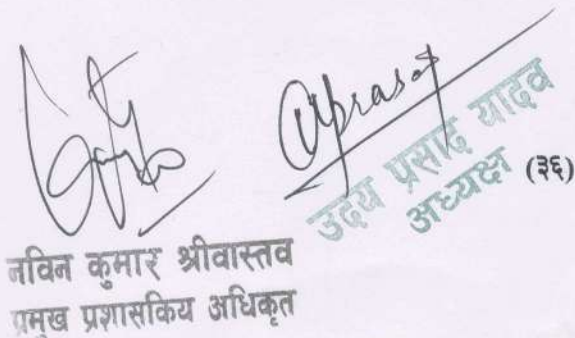 uprasad
उदय प्रसाद यादव
अध्यक्ष
(३६)
नविन कुमार श्रीवास्तव
प्रमुख प्रशासकिय अधिकृत